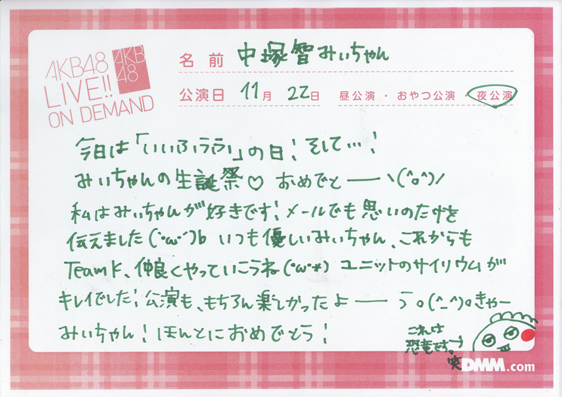 AKB48
LIVE!!
ON DEMAND
AKB
48
名前 中塚智みぃちゃん
公演日 11月 22日 昼公演・おやつ公演・夜公演
今日は「いいふうふ」の日!そして…!
みぃちゃんの生誕祭♡ おめでとーーヽ(^o^)ノ
私はみぃちゃんが好きです!メールでも思いのたけを
伝えました(´・ω・`)b いつも優しいみぃちゃん、これからも
TeamK、仲良くやっていこうね(・ω・*) ユニットのサイリウムが
キレイでした!公演も、もちろん楽しかったよーー o(^_^)oきゃー
みぃちゃん!ほんとにおめでとう!
これは
恐竜です。→
笑
DMM.com